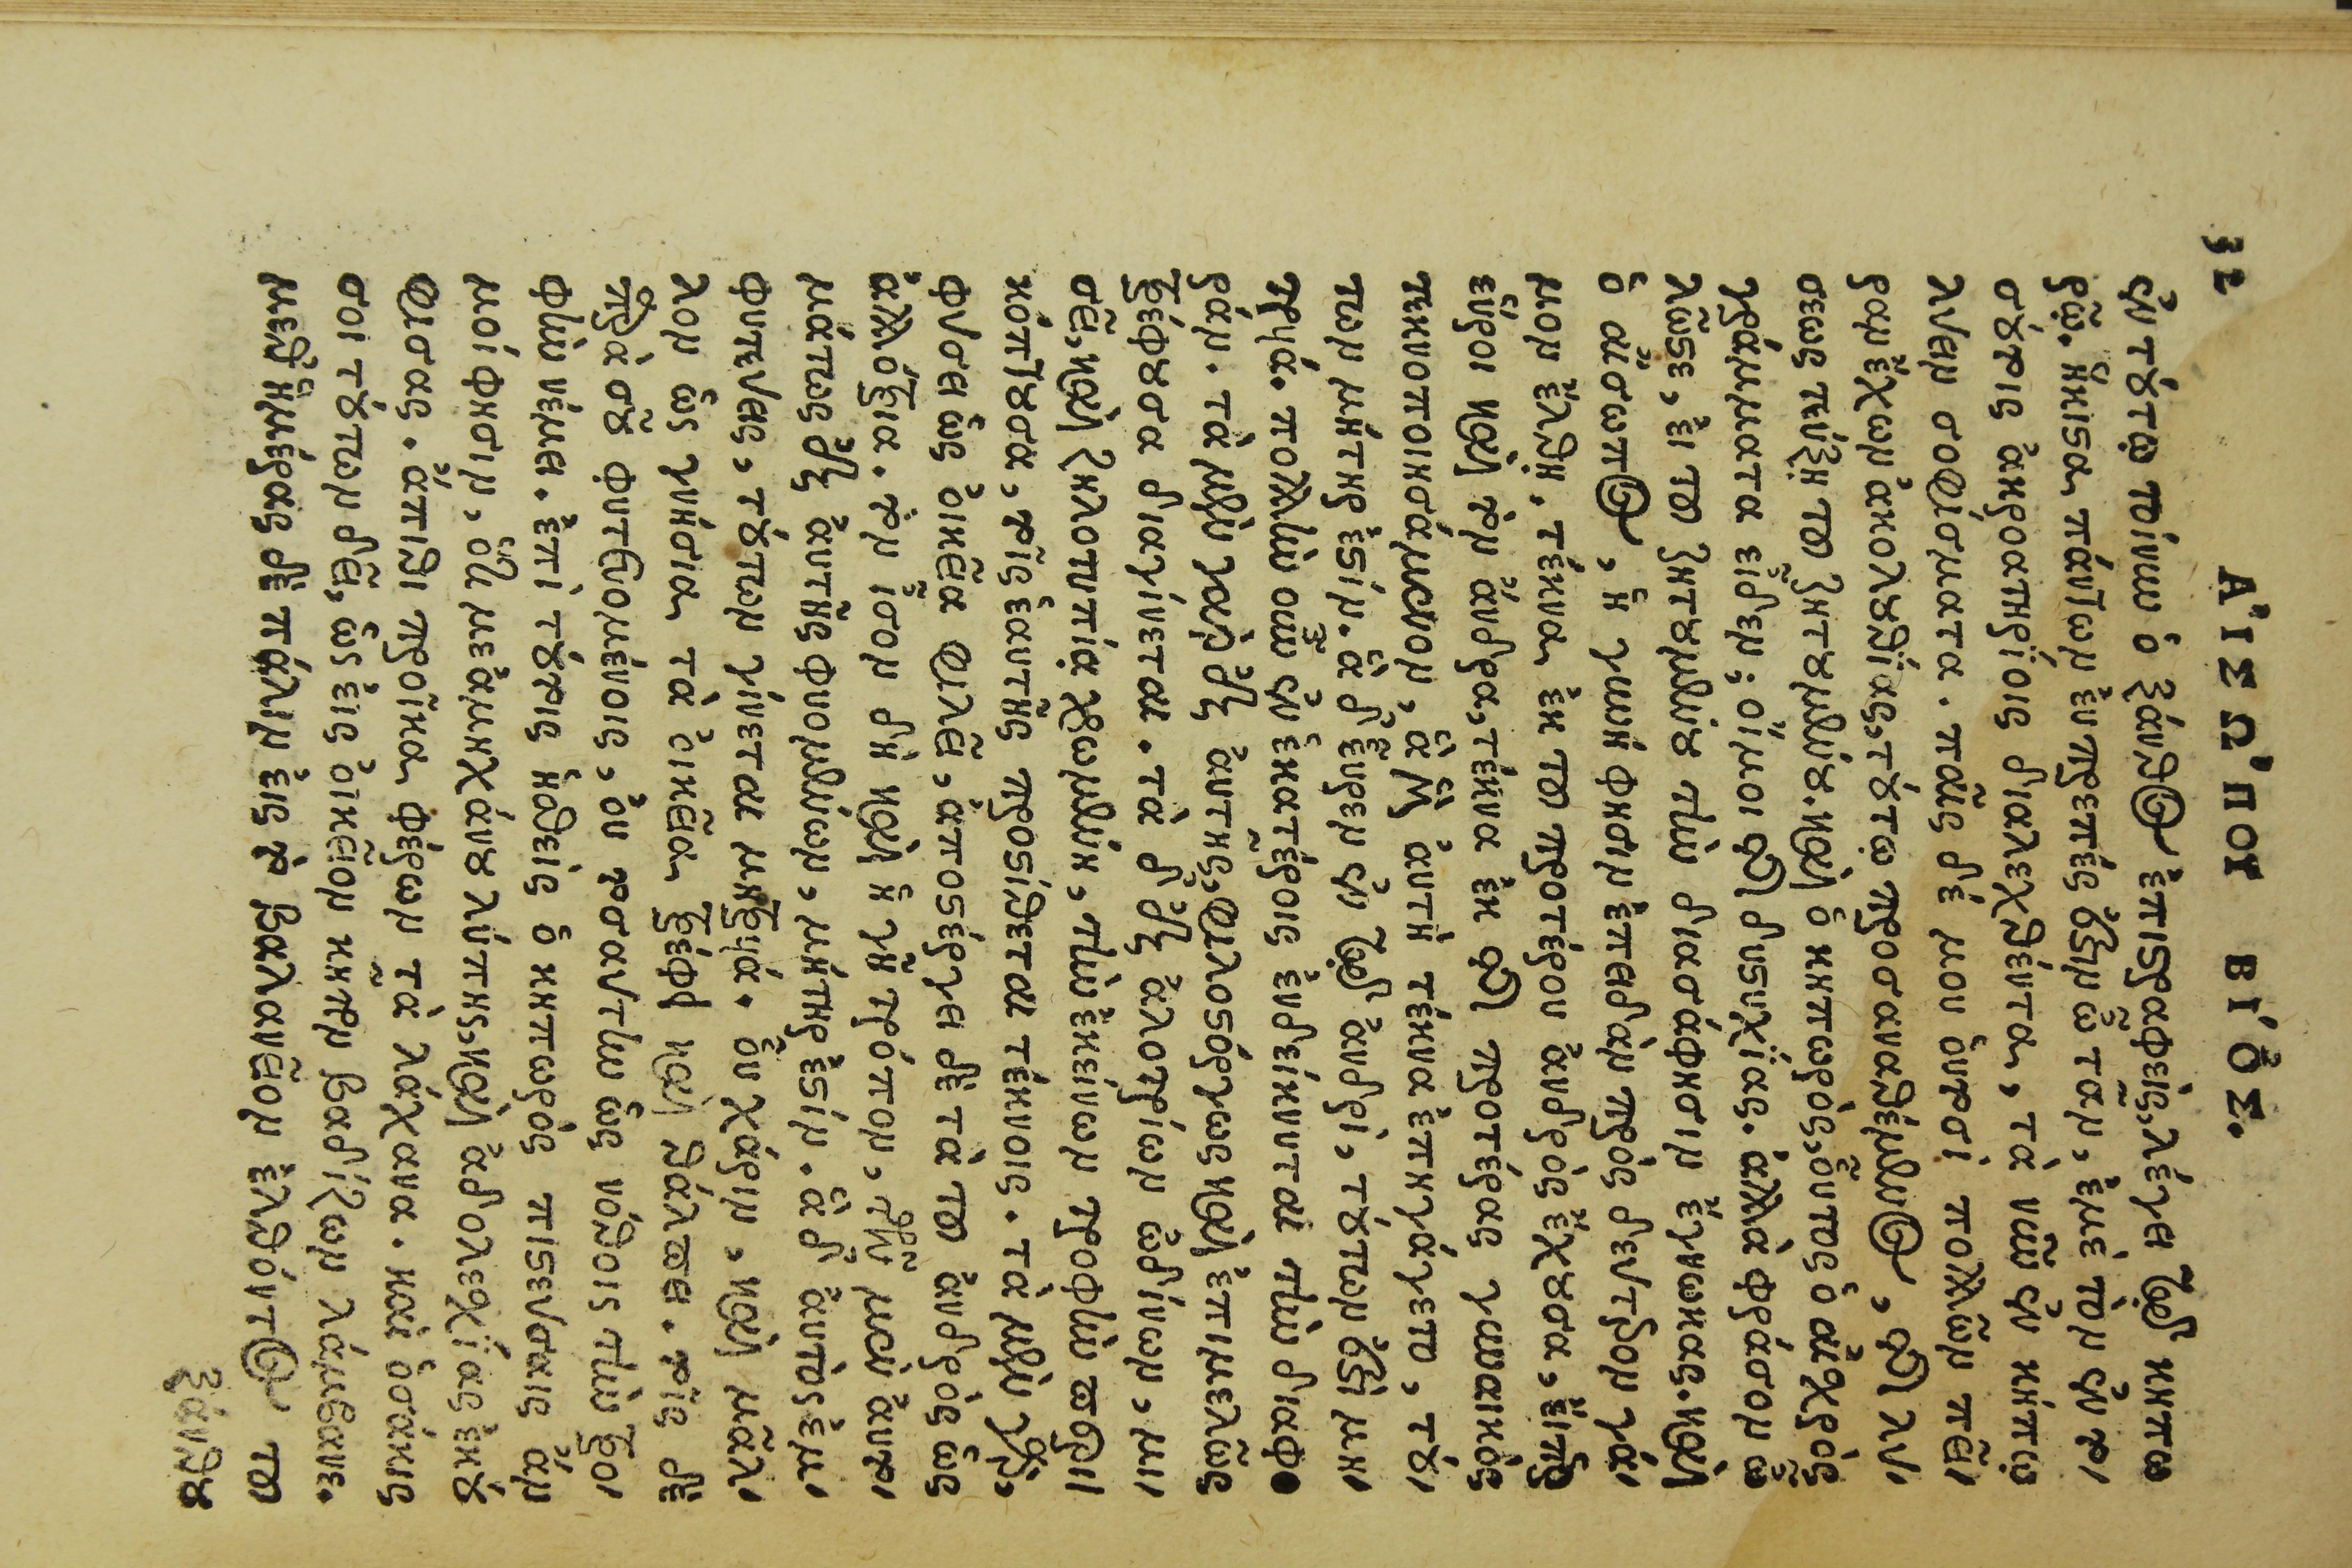 32 ΑἸΣΩ'ΠΟΥ ΒΙ'ΟΣ.
ἐν τούτῳ τοίνυν ὁ ξάνθος ἐπιστραφεὶς, λέγει τῷ κηπω
ρῷ. ἥκιστα πάντων ἐν πρεπές ἐστιν ὦ ταν, ἐμὲ τὸν ἐν το
σούτοις ἀκροατηρίοις διαλεχθέντα, τὰ νῦν ἐν κήπῳ
λύειν σοφίσματα. παῖς δέ μου οὑτοσὶ πολλῶν πεῖ
ραν ἔχων ἀκολουθίας, τούτῳ προσαναθέμενος, τῆς λύ
σεως τεύξῃ τοῦ ζητουμένου. καὶ ὁ κηπωρὸς, οὗτος ὁ αἰσχρὸς
γράμματα εἶδεν; οἴμοι τῆς δυστυχίας. ἀλλὰ φράσον ὦ
λῷστε, εἰ τοῦ ζητουμένου τὴν διασάφησιν ἔγνωκας. καὶ
ὁ αἴσωπος, ἡ γυνή φησιν ἐπειδὰν πρὸς δεύτερον γά
μον ἔλθῃ, τέκνα ἐκ τοῦ προτέρου ἀνδρὸς ἔχουσα, εἴπερ
εὕροι καὶ τὸν ἄνδρα, τέκνα ἐκ τῆς προτέρας γυναικὸς
τεκνοποιησάμενον, ἃ μὲν αὐτὴ τέκνα ἐπηγάγετο, τού
των μήτηρ ἐστίν. ἃ δ' εὗρεν ἐν τῷ ἀνδρὶ, τούτων ἐστὶ μη
τρυιά. πολλὴν οὖν ἐν ἑκατέροις ἐνδείκνυται τὴν διαφο
ράν. τὰ μὲν γὰρ ἐξ αὐτῆς, φιλοστόργως καὶ ἐπιμελῶς
τρέφουσα διαγίνεται. τὰ δ' ἐξ ἀλοτρίων ὠδίνων, μι
σεῖ, καὶ ζηλοτυπίᾳ χρωμένη, τὴν ἐκείνων τροφὴν περι
κόπτουσα, τοῖς ἑαυτῆς προστίθεται τέκνοις. τὰ μὲν γὰρ,
φύσει ὡς οἰκεῖα φιλεῖ, ἀποστέργει δὲ τὰ τοῦ ἀνδρὸς ὡς
ἀλλότρια. τὸν ἴσον δὴ καὶ ἡ γῆ τρόπον, τῶν μὲν αὐτο
μάτως ἐξ αὐτῆς φυομένων, μήτηρ ἐστίν. ἃ δ' αὐτὸς ἐμ
φυτεύεις, τούτων γίνεται μητρυιά. οὗ χάριν, καὶ μᾶλ
λον ὡς γνήσια τὰ οἰκεῖα τρέφει καὶ θάλπει. τοῖς δὲ
παρὰ σοῦ φυτευομένοις, οὐ τοσαύτην ὡς νόθοις τὴν τρο
φὴν νέμει. ἐπὶ τούτοις ἡσθεὶς ὁ κηπωρὸς πιστεύσαις ἄν
μοί φησιν, ὅτι με ἀμηχάνου λύπης, καὶ ἀδολεσχίας ἐκού
φισας. ἄπιθι προῖκα φέρων τὰ λάχανα. καὶ ὁσάκις
σοι τούτων δεῖ, ὡς εἰς οἰκεῖον κῆπον βαδίζων λάμβανε.
μεθ' ἡμέρας δὲ πάλιν εἰς τὸ βαλανεῖον ἐλθόντος τοῦ
ξάνθου